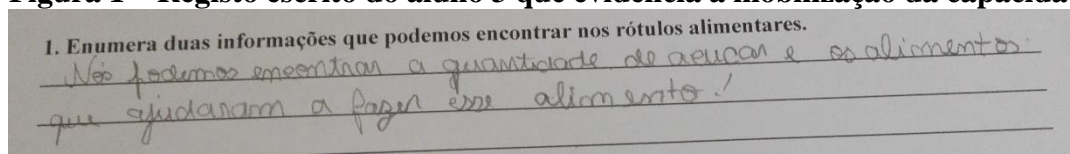 Figura 1 – Registo escrito do aluno 3 que evidencia a mobilização da capacida
1. Enumera duas informações que podemos encontrar nos rótulos alimentares.
Nós podemos emcontrar a quantidade de açucar e os alimentos
que ajudaram a fazer esse alimento!